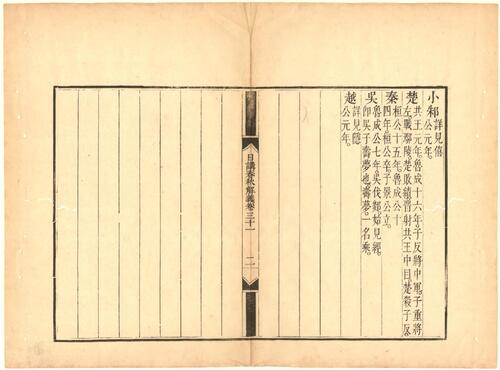 小邾詳見僖
公元年。
楚共王元年。魯成十六年。子反將中軍。子重將
左。戰鄢陵。楚敗績。晉射共王中目。楚殺子反。
秦桓公十五年。魯成公十
四年。桓公卒。子景公立。
吳魯成公七年。吳伐郯。始見經。
卽吳子壽夢也。壽夢一名乘。
越詳見隱
公元年。
日講春秋解義卷三十一 二